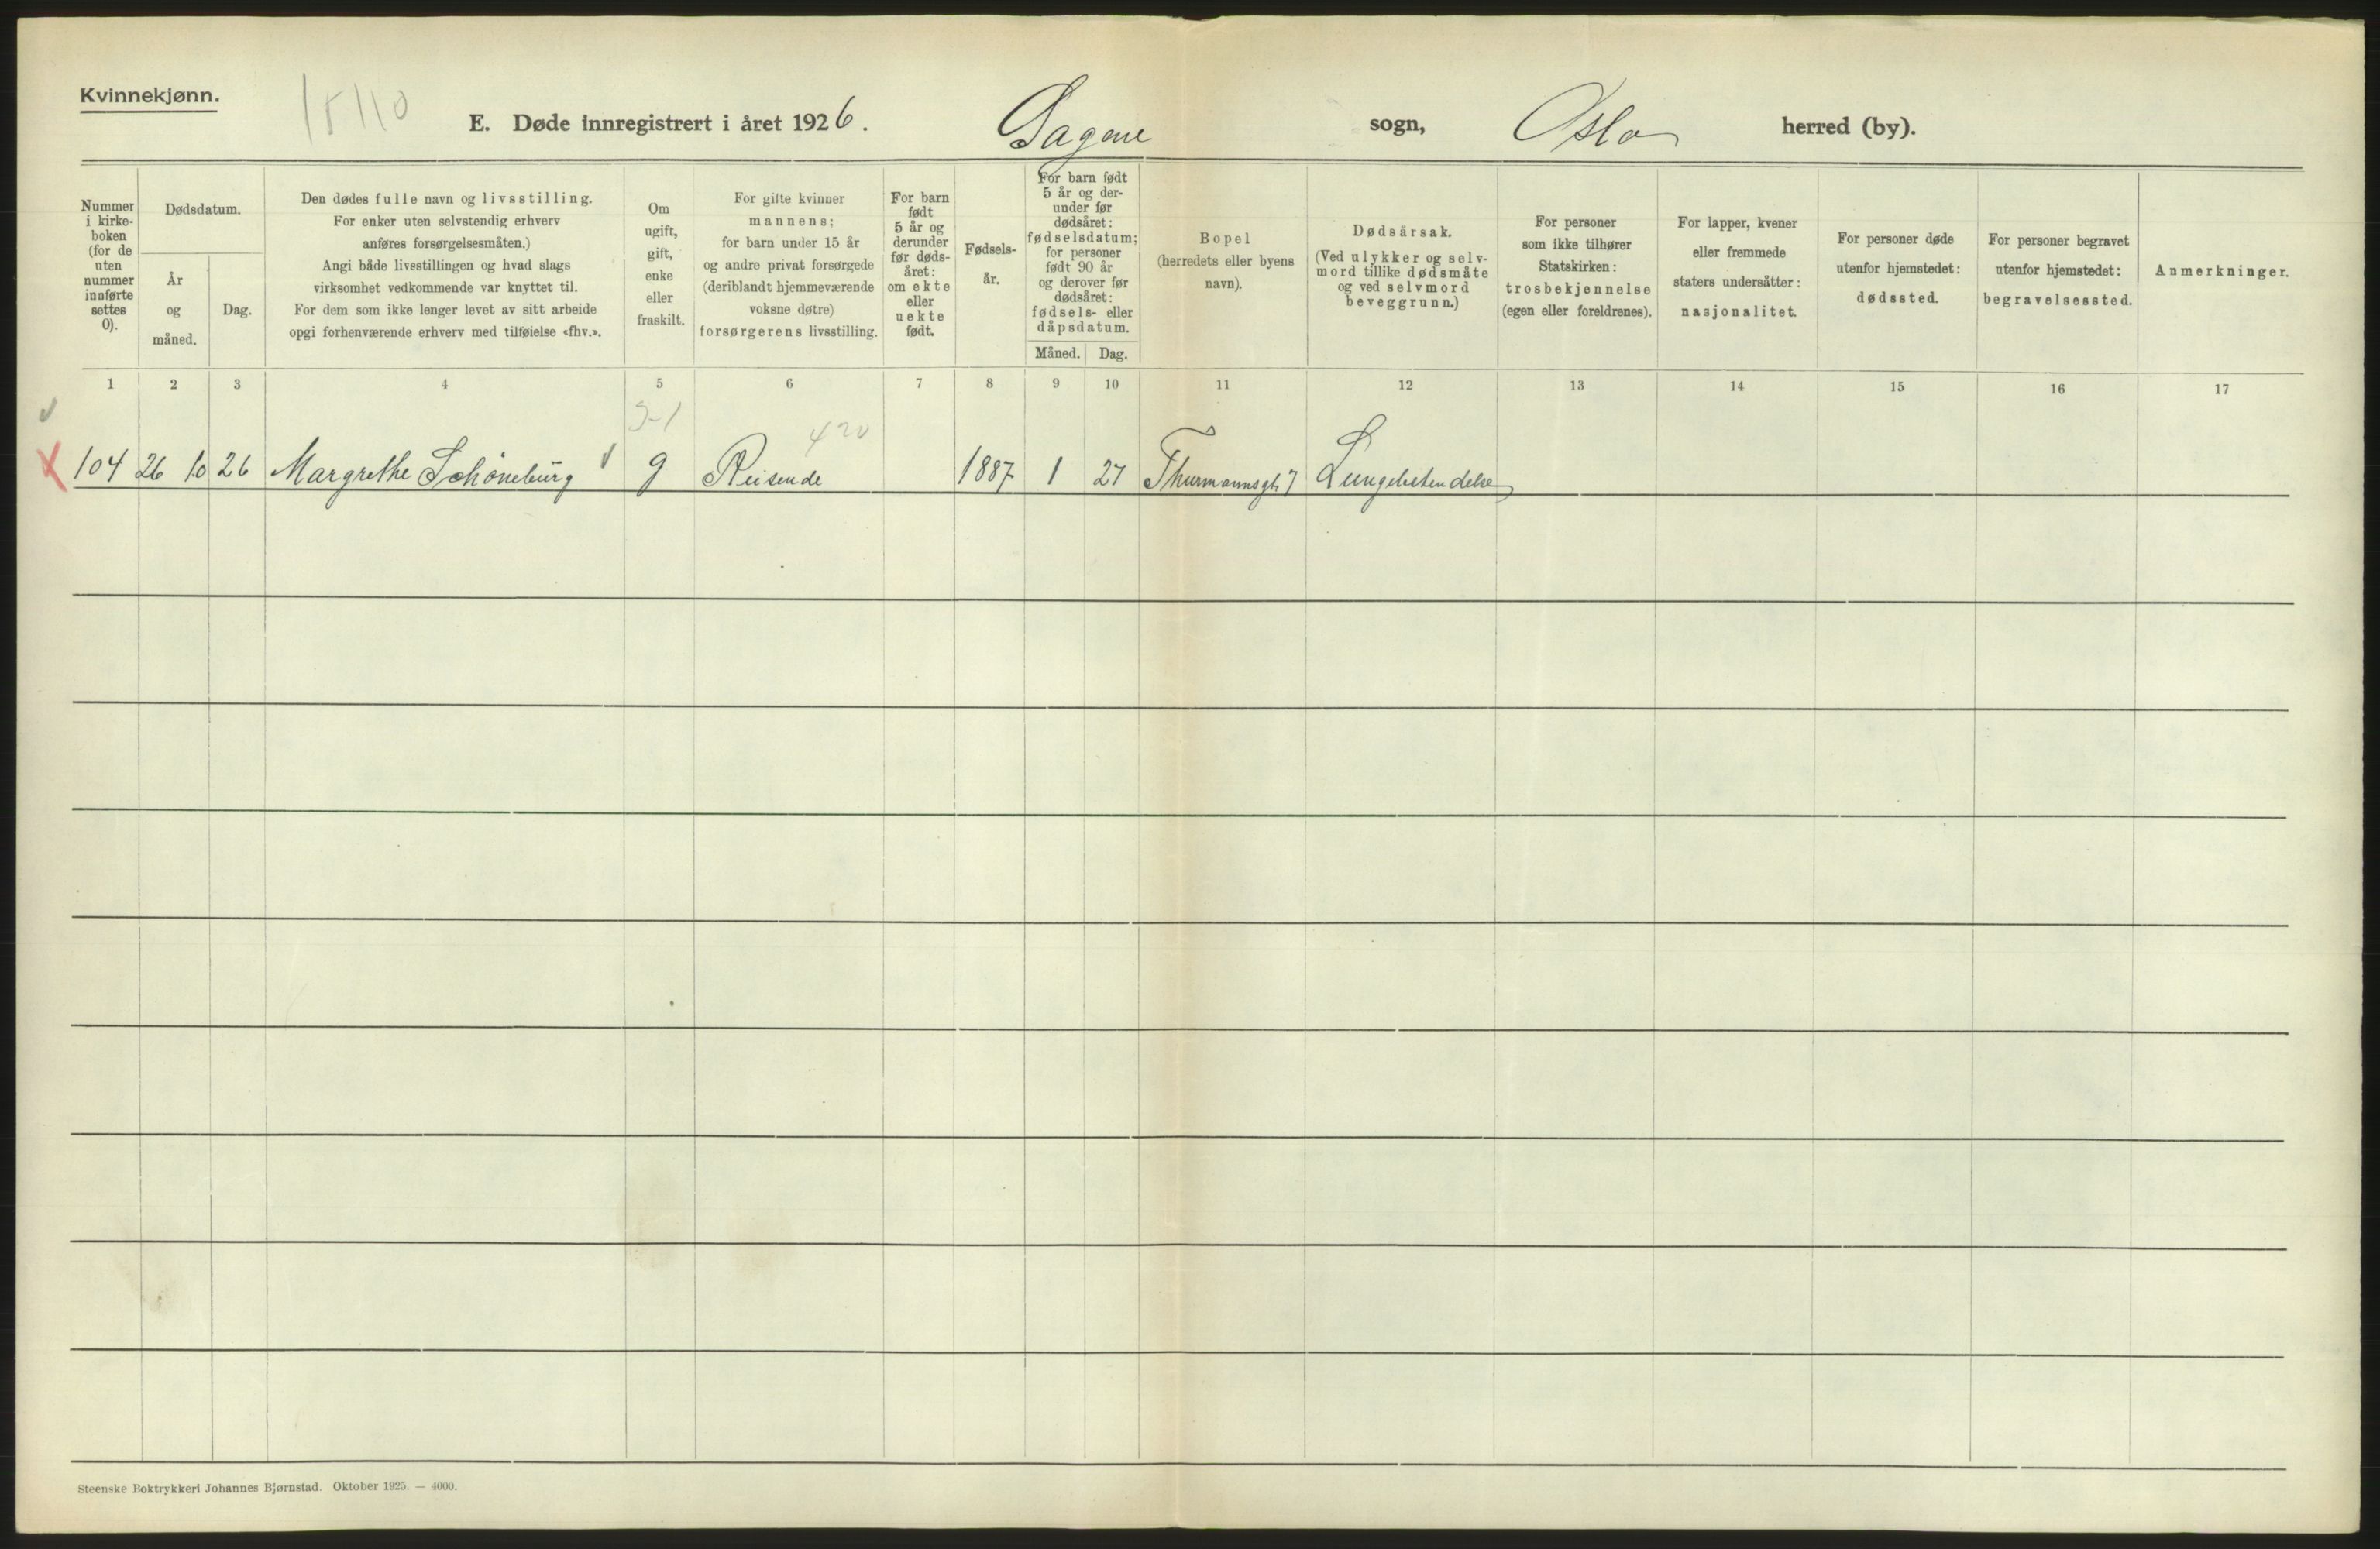 Kvinnekjønn.
18110
E. Døde innregistrert i året 1926. Sagene sogn, Oslo herred (by).
Nummer i kirke-boken (for de uten nummer innførte settes 0).
Dødsdatum.
År og måned.
Dag.
Den dødes fulle navn og livsstilling.
For enker uten selvstendig erhverv
anføres forsørgelsesmåten.)
Angi både livsstillingen og hvad slags
virksomhet vedkommende var knyttet til.
For dem som ikke lenger levet av sitt arbeide
opgi forhenværende erhverv med tilføielse «fhv.».
Om
ugift,
gift,
enke
eller
fraskilt.
For gifte kvinner
mannens;
for barn under 15 år
og andre privat forsørgede
(deriblandt hjemmeværende
voksne døtre)
forsørgerens livsstilling.
For barn
født
5 år og
derunder
før døds-
året:
om ekte
eller
uekte
født.
Fødsels-
år.
For barn født
5 år og der-
under før
dødsåret:
fødselsdatum;
for personer
født 90 år
og derover før
dødsåret:
fødsels- eller
dåpsdatum.
Måned. Dag.
Bopel
(herredets eller byens
navn).
Dødsårsak.
(Ved ulykker og selv-
mord tillike dødsmåte
og ved selvmord
beveggrunn.)
For personer
som ikke tilhører
Statskirken:
trosbekjennelse
(egen eller foreldrenes).
For lapper, kvener
eller fremmede
staters undersåtter:
nasjonalitet.
For personer døde
utenfor hjemstedet:
dødssted.
For personer begravet
utenfor hjemstedet:
begravelsessted.
Anmerkninger.
1 2 3 4 5 6 7 8 9 10 11 12 13 14 15 16 17
420
104 26 10 26 Margrethe Schöneburg g Reisende 1887 1 27 Thurmannsgt. 7 Lungebetendelse
Steenske Boktrykkeri Johannes Bjørnstad. Oktober 1925. — 4000.